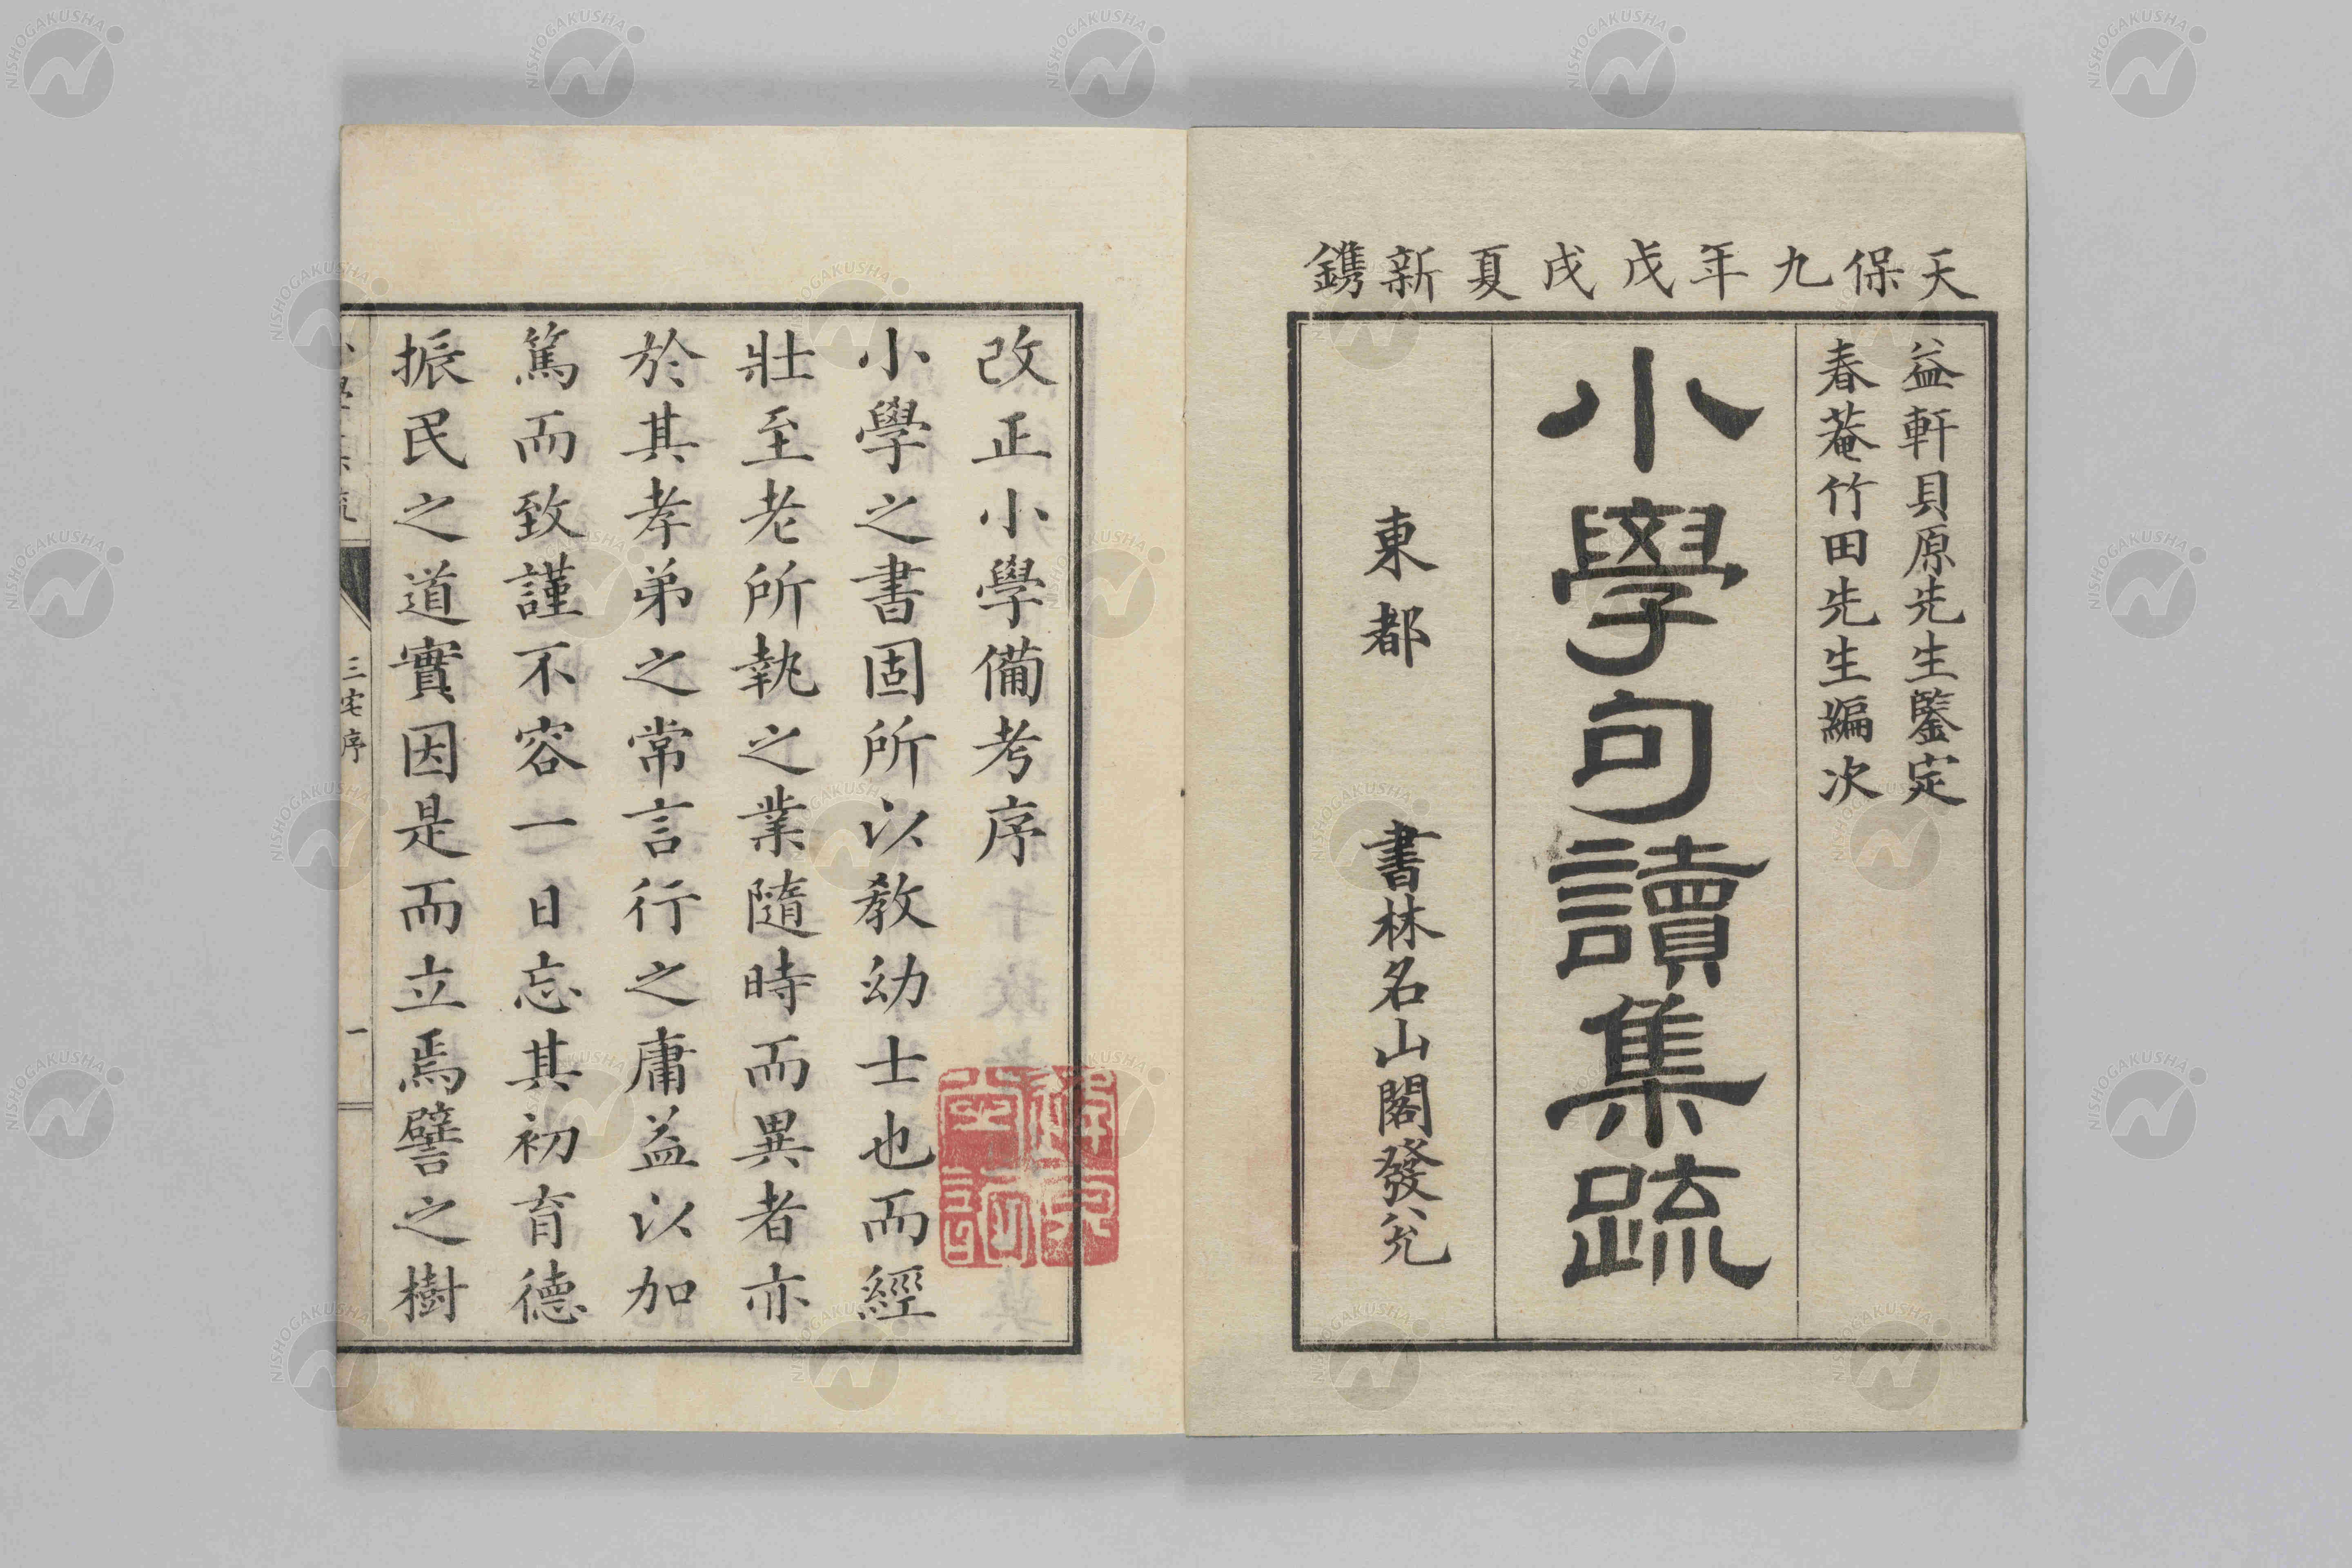 天保九年戊戌夏新鐫
益軒貝原先生鑒定
春菴竹田先生編次
小學句讀集疏
東都 書林名山閣發兌
改正小學備考序
小學之書固所以教幼士也而經
壯至老所執之業隨時而異者亦
於其孝弟之常言行之庸益以加
篤而致謹不容一日忘其初育德
振民之道實因是而立焉譬之樹
三宅序
一
NISHOGAKUSHA